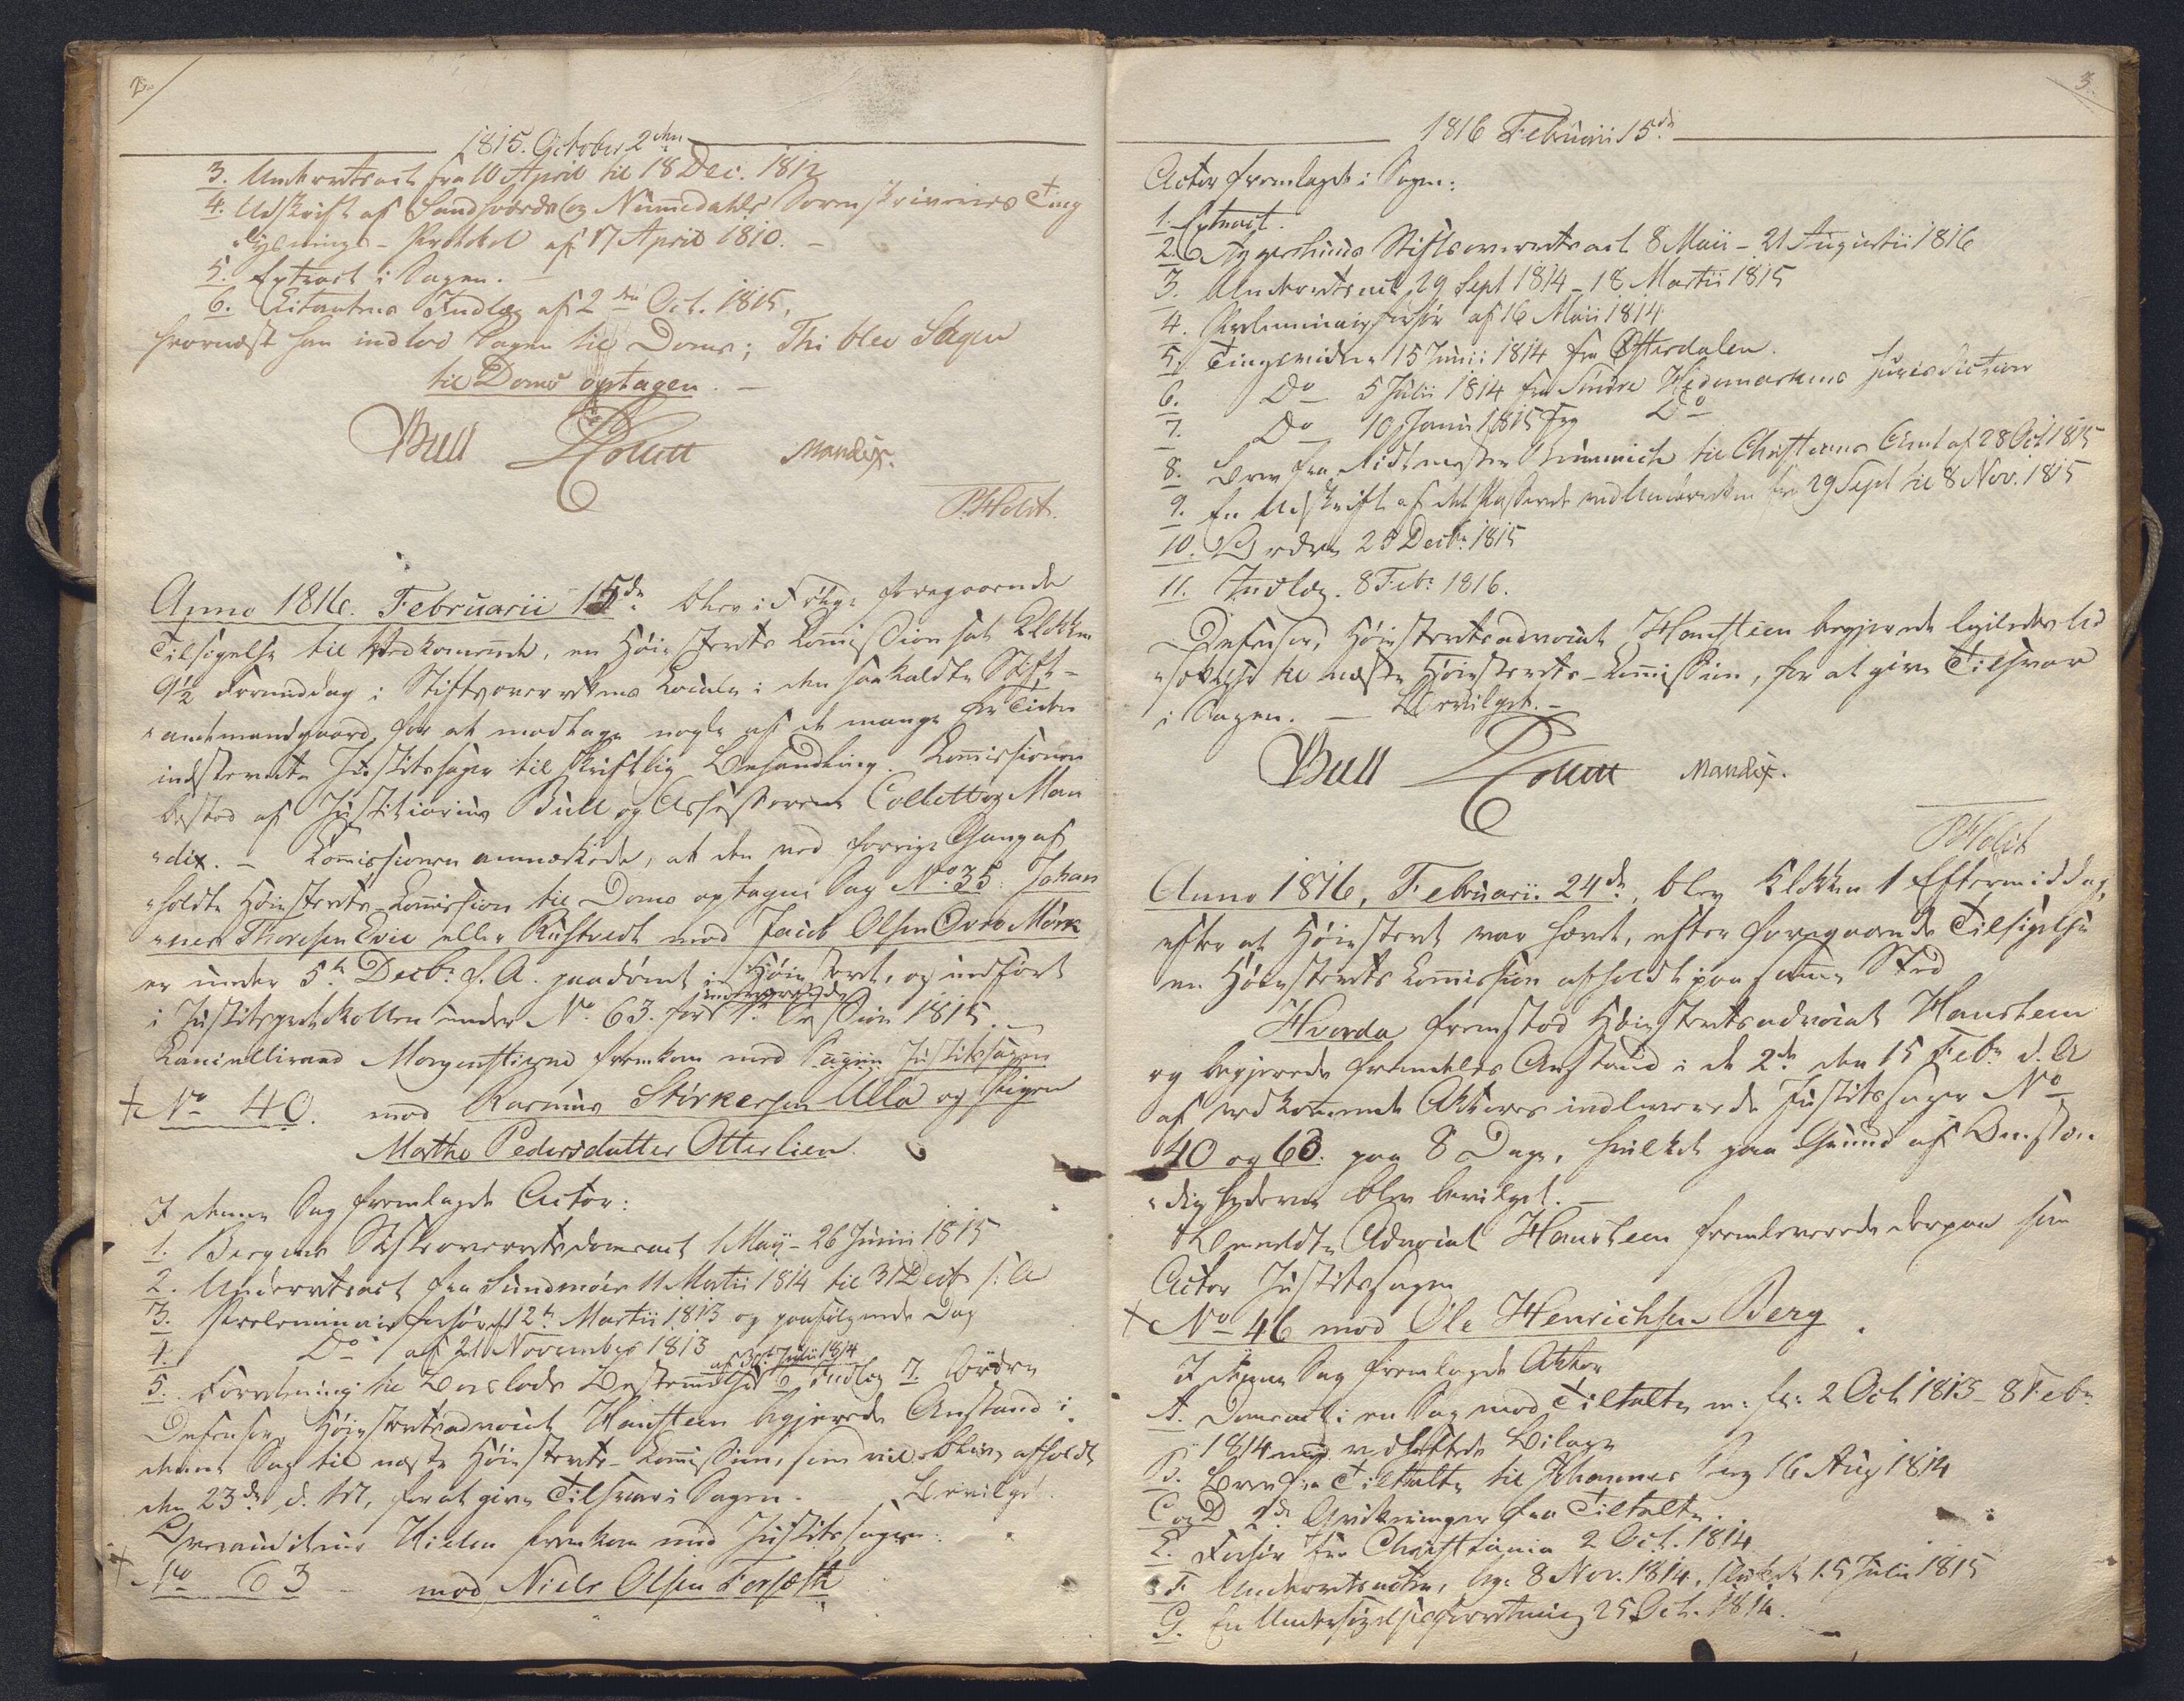 2.
1815. October 2den
3. Underretsact fra 10 April til 18 Dec. 1812
4. Udskrift af Sandsværds og Nummedahls Sorenskriveries Ting
"lysnings-Protokol af 17 April 1810. –
5. Extract i Sagen.
6. Citantens Indlæg af 2den Oct. 1815,
hvornæst han indlod Sagen til Doms; Thi blev Sagen
til Doms optagen. –
Bull Collett Mandix.
P. Holst.
Anno 1816. Februarii 15de blev i Følge foregaaende
Tilsigelse til Vedkommende, en Høiesterets Commission sat Klokken
9½ Formiddag i Stiftsoverrettens Locale i den saakaldte Stift-
"amtmandgaard, for at modtage nogle af de mange for Tiden
indstevnte Justitssager til skriftlig Behandling. Commissionen
bestod af Justitiarius Bull og Assessorerne Collett og Man
"dix. – Commissionen anmærkede, at den ved forrige Gang af
"holdte Høiesterets-Commission til Doms optagne Sag No. 35. Johan
"nes Thoresen Evie eller Rustvedt mod Jacob Olsen Øvre Mörk
er under 5te Decbr. f. A. paadømt i Høiesteret, og indført
i Justitsprotokollen under No. 63. for Session 1815. –
Cancelliraad Morgenstierne fremkom med Justitssagen
No 40. mod Rasmus Störkersen Ulla og Pigen
Marthe Pedersdatter Otterlien.
I denne Sag fremlagde Actor:
1. Bergens Stiftsoverretsdomsact 1 Maij – 26 Junii 1815
2. Underretsact fra Sundmöer 11 Martii 1814 til 31 Decb. s. A
3. Preliminairforhör af 12te Martii 1813 og paafølgende Dag
4. Do af 21 November 1813
af 30 Julii 1814
5. Forretning til Barslods Bestemmelse 6. Indlæg 7. Ordre
Defensor, Høiesteretsadvocat Hansteen begjerede Anstand i
denne Sag til næste Høiesterets-Commission, som vil blive afholdt
den 23de d. M., for at give Tilsvar i Sagen. Bevilget.
Overauditeur Hielm fremkom med Justitssagen:
No 63 – mod Niels Olsen Forsæth
3.
1816 Februarii 15de
Actor fremlagde i Sagen:
1. Extract.
2. Aggershuus Stiftsoverretsact 8 Maii – 21 Augustii 1816
3. Underretsact 29 Sept 1814 – 18 Martii 1815
4. Preliminairforhör af 16 Maii 1814
5. Tingsvidne 15 Junii 1814 fra Østerdalen.
6. Do 5 Julii 1814 fra Söndre Hedemarkens Jurisdiction
7. Do 10 Janu 1815 fra Do
8. Brev fra Ridtmester til Christians Amt af 28 Oct 1815
9. En Udskrift af det Passerede ved Underretten fra 29 Sept til 8 Nov. 1815
10. Ordre 28 Decbr. 1815
11. Indlæg. 8 Febr. 1816.
Defensor, Høiesteretsadvocat Hansteen begjerede Sagens Ud
"sættelse til næste Høiesterets-Commission, for at give Tilsvar
i Sagen. – Bevilget. –
Bull Collett Mandix.
P Holst
Anno 1816, Februarii 24de, blev Klokken 1 Eftermiddag,
efter at Høiesteret var hævet, efter foregaaende Tilsigelse
en Høiesterets Commission afholdt paa samme Sted
Hvorda fremstod Høiesteretsadvocat Hansteen
og begjerede fremdeles Anstand i de 2de den 15 Febr. d. A
af vedkommende Aktorer indleverede Justitssager No
40 og 63. paa 8 Dage, hvilket paa Grund af Omstæn
"dighederne blev bevilget. –
Bemeldte Advocat Hansteen fremleverede derpaa som
Actor Justitssagen
No 46 mod Ole Henrichsen Berg
I denne Sag fremlagde Aktor
A. Domsact i en Sag mod Tiltalte m: fl: 2 Oct 1813 – 8 Febr.
1814 med vedheftede Bilage
B. Brev fra Tiltalte til Johannes Berg 16 Aug 1814
C og D 2de Qvitteringer fra Tiltalte.
E. Forhör fra Christiania 2 Oct. 1814
F. Underretsacten, beg. 8 Nov. 1814, sluttet 15 Julii 1815
G. En Undersögelsesforretning 25 Oct. 1814.